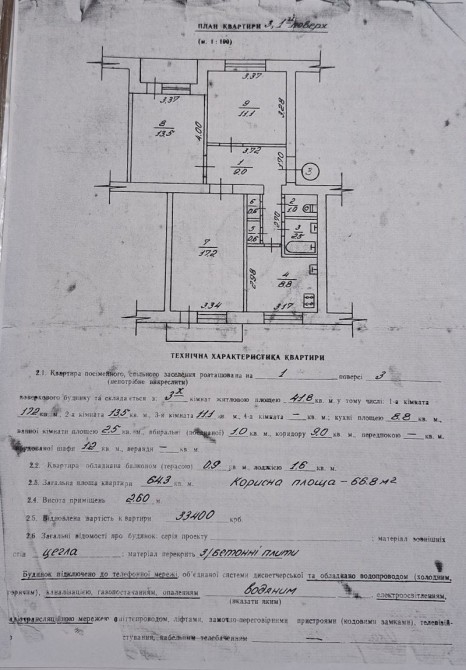 ПЛАН КВАРТИРИ 3, 1й поверх
(м. 1 : 100)
3.37
9
11.1
3.28
3.37
8
13.5
4.00
3.72
1
9.0
1.70
3
2
1.0
6
0.6
5
0.6
0.90
3
2.5
7
17.2
2.98
4
8.8
3.34
3.17
ТЕХНІЧНА ХАРАКТЕРИСТИКА КВАРТИРИ
2.1. Квартира посімейного, спільного заселення розташована на 1 поверсі 3
(непотрібне закреслити)
поверхового будинку та складається з: 3х кімнат житлового площею 41.8 кв. м у тому числі: 1-а кімната
17.2 кв. м., 2-а кімната 13.5 кв. м., 3-я кімната 11.1 кв. м., 4-а кімната — кв. м.; кухні площею 8.8 кв. м.,
ванної кімнати площею 2.5 кв. м., вбиральні 1.0 кв. м., коридору 9.0 кв. м., передпокою — кв. м.
шафи 1.2 кв. м., веранди — кв. м.
2.2. Квартира обладнана балконом (терасою) 0.9 кв. м., лоджією 1.6 кв. м.
2.3. Загальна площа квартири 64.3 кв. м. Корисна площа – 66.8 м2
2.4. Висота приміщень 2.60 м.
2.5. Відновлена вартість квартири 33400 крб
2.6. Загальні відомості про будинок: серія проекту ; матеріал зовнішніх
стін цегла ; матеріал перекрить з/бетонні плити
Будинок підключено до телефонної мережі, об'єднаної системи диспетчерської та обладнано водопроводом (холодним,
гарячим), каналізацією, газопостачанням, опаленням водяним електроосвітленням,
(вказати яким)
мережею, сміттєпроводом, ліфтами, замочно-переговорними пристроями (кодовими замками),
кабельним телебаченням —